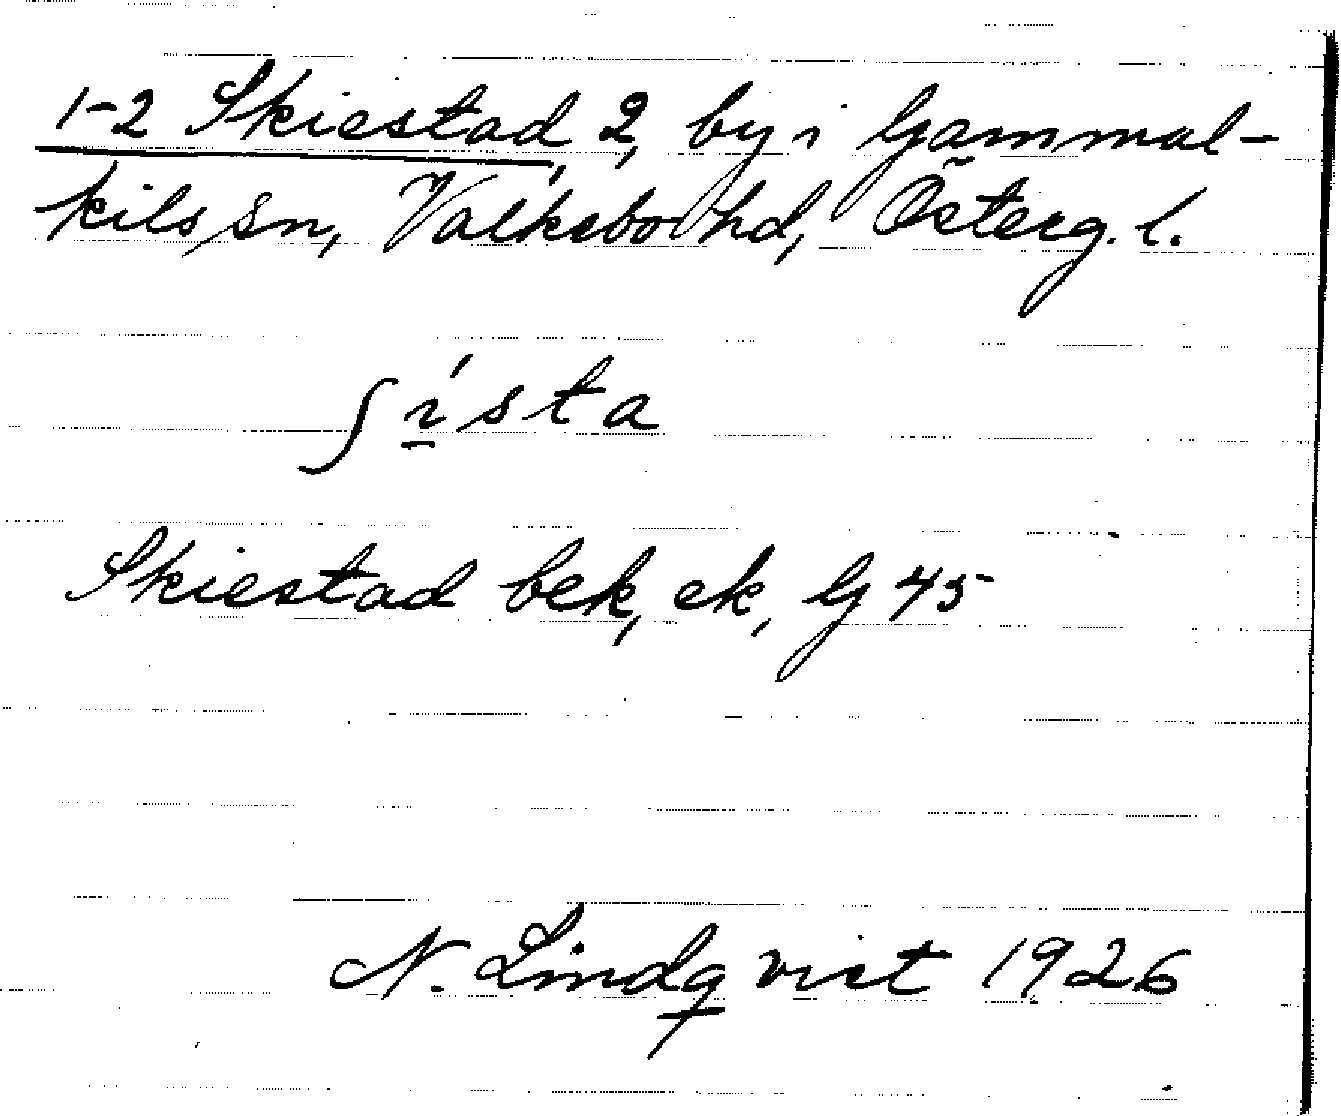 1-2 Skiestad, 2, by i Gammal-
kils sn, Valkebo hd, Österg. l.
ʃí̱sta
Skiestad bek, ek, G 45
N. Lindqvist 1926